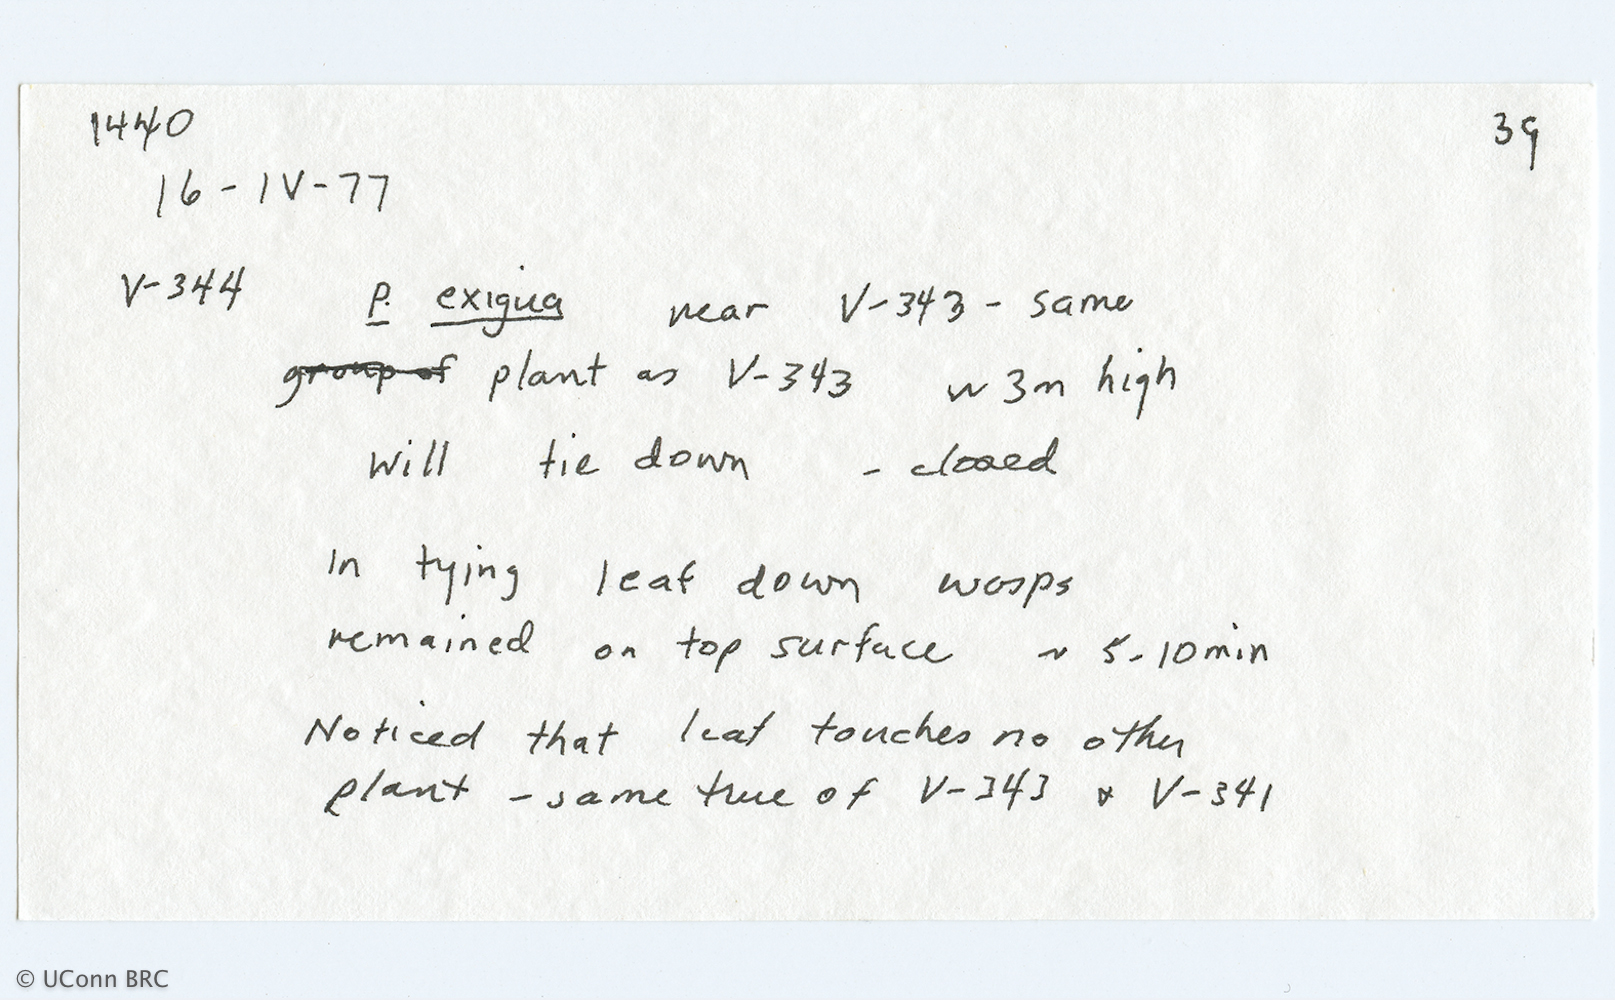 1440
39
16-IV-77
V-344 P. exigua near V-343 - same
group of plant as V-343 ~ 3m high
will tie down - closed
In tying leaf down wasps
remained on top surface ~ 5-10min
Noticed that leaf touches no other
plant - same true of V-343 & V-341
© UConn BRC